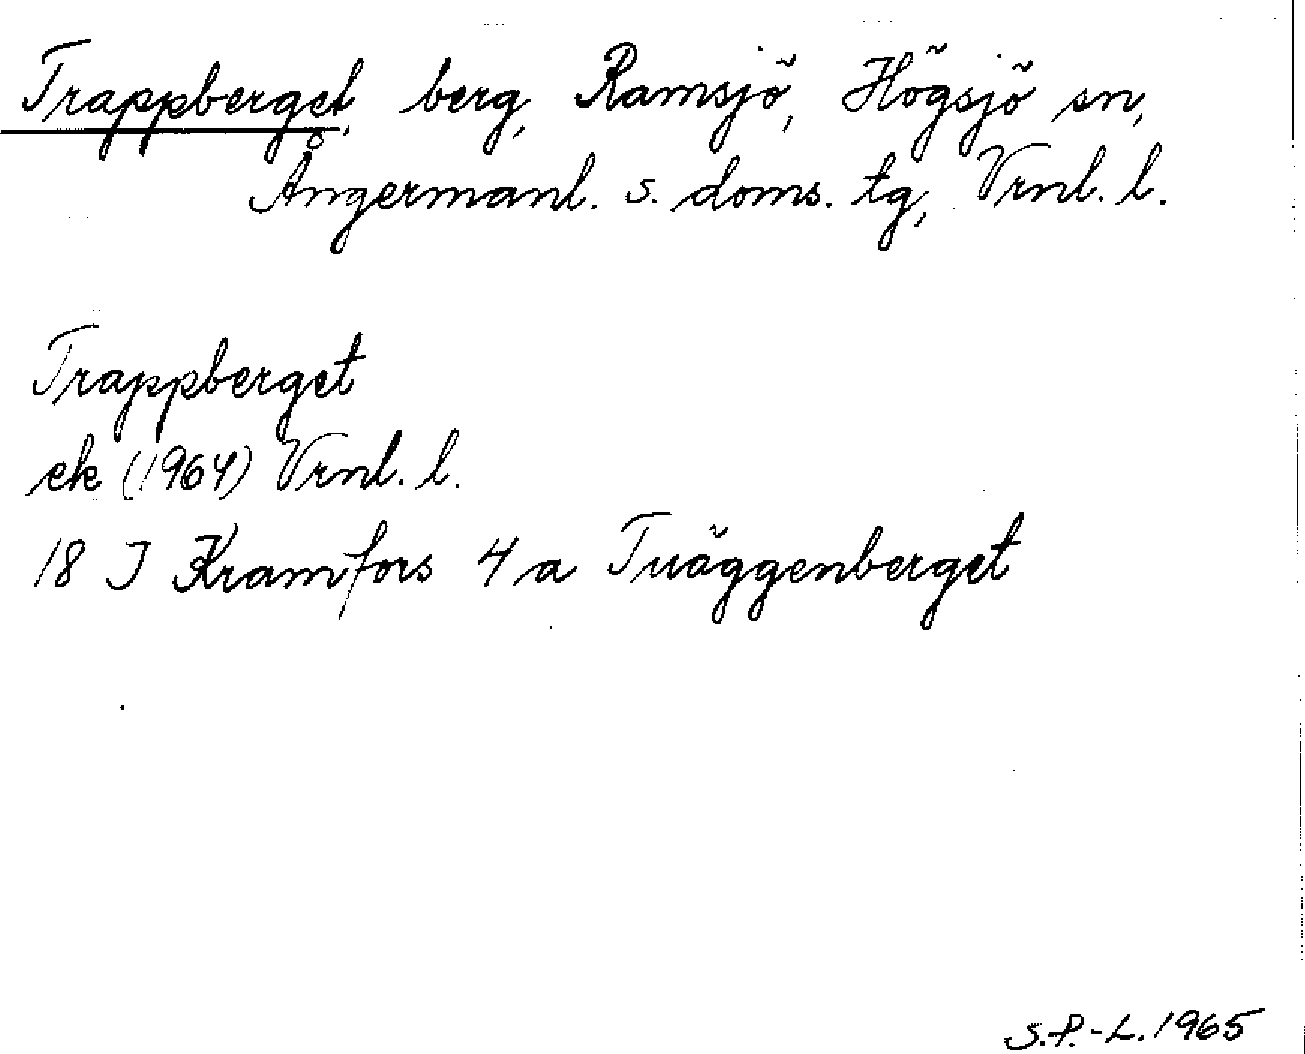 Trappberget, berg, Ramsjö, Högsjö sn,
Ångermanl. s. doms. tg, Vrnl. l.
Trappberget
ek (1964) Vrnl. l.
18 J Kramfors 4 a Tväggenberget
S.P.-L. 1965